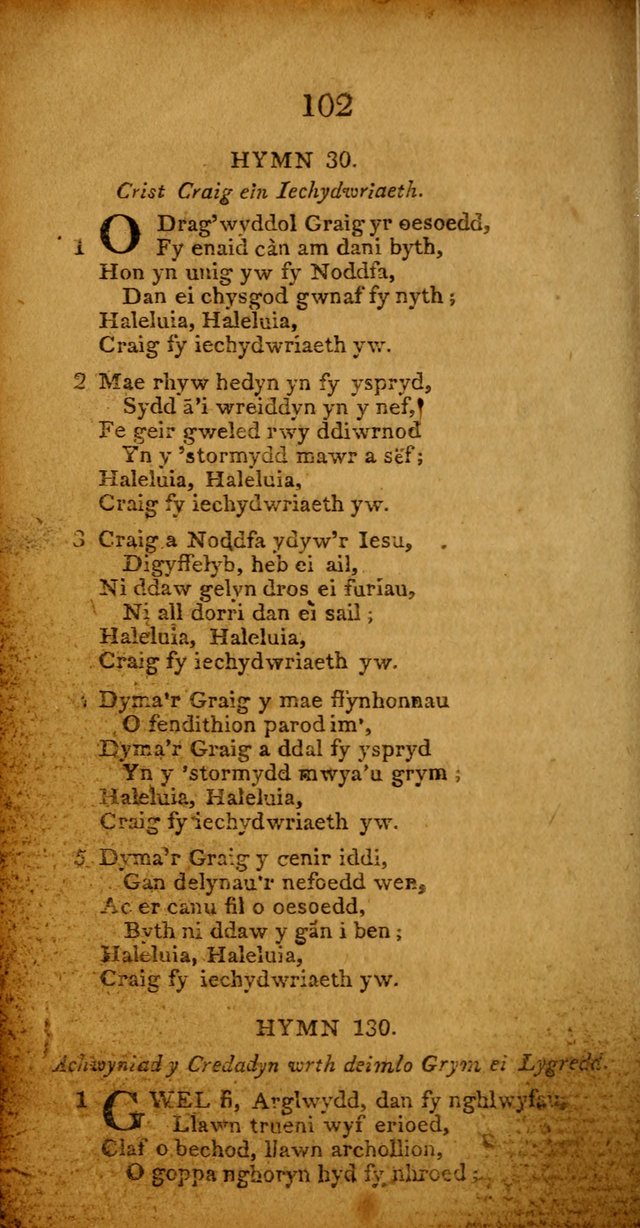 102
HYMN 30.
Crist Craig ein Iechydwriaeth.
1 O Drag'wyddol Graig yr oesoedd,
Fy enaid càn am dani byth,
Hon yn unig yw fy Noddfa,
Dan ei chysgod gwnaf fy nyth;
Haleluia, Haleluia,
Craig fy iechydwriaeth yw.
2 Mae rhyw hedyn yn fy yspryd,
Sydd ā'i wreiddyn yn y nef,
Fe geir gweled rwy ddiwrnod
Yn y 'stormydd mawr a sëf;
Haleluia, Haleluia,
Craig fy iechydwriaeth yw.
3 Craig a Noddfa ydyw'r Iesu,
Digyffelyb, heb ei ail,
Ni ddaw gelyn dros ei furiau,
Ni all dorri dan ei sail;
Haleluia, Haleluia,
Craig fy iechydwriaeth yw.
Dyma'r Graig y mae ffynhonnau
O fendithion parod im',
Dyma'r Graig a ddal fy yspryd
Yn y 'stormydd mwya'u grym;
Haleluia, Haleluia,
Craig fy iechydwriaeth yw.
5 Dyma'r Graig y cenir iddi,
Gan delynau'r nefoedd wen,
Ac er canu fil o oesoedd,
Byth ni ddaw y gân i ben;
Haleluia, Haleluia,
Craig fy iechydwriaeth yw.
HYMN 130.
Achwyniad y Credadyn wrth deimlo Grym ei Lygredd.
1 GWEL fi, Arglwydd, dan fy nghlwyfau,
Llawn trueni wyf erioed,
Claf o bechod, llawn archollion,
O goppa nghoryn hyd fy nhroed;